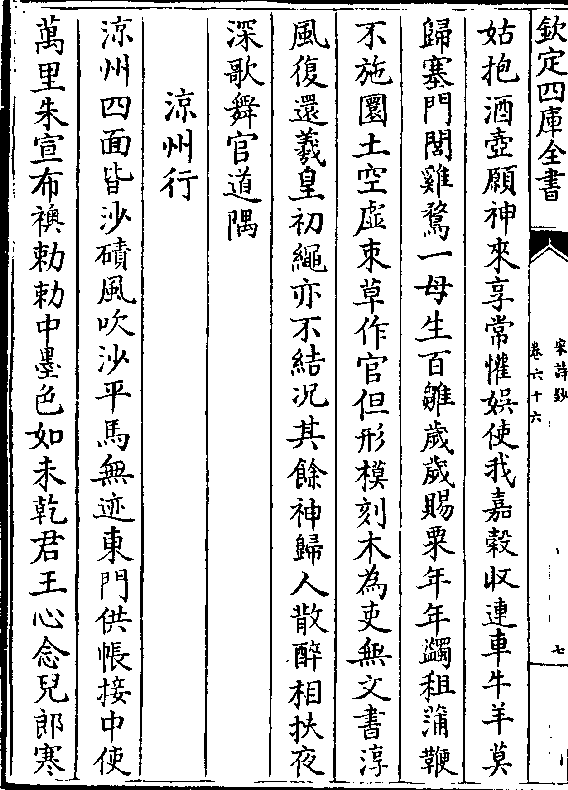 欽定四庫全書
宋詩鈔
卷六十六
七
姑抱酒壺願神來享常懽娱使我嘉穀收連車牛羊莫
歸塞門閭雞鶩一母生百雛歲歲賜粟年年蠲租蒲鞭
不施圜土空虛束草作官但形模刻木為吏無文書淳
風復還羲皇初繩亦不結況其餘神歸人散醉相扶夜
深歌舞官道隅
涼州行
涼州四面皆沙磧風吹沙平馬無迹東門供帳接中使
萬里朱宣布襖勅勅中墨色如未乾君王心念兒郎寒